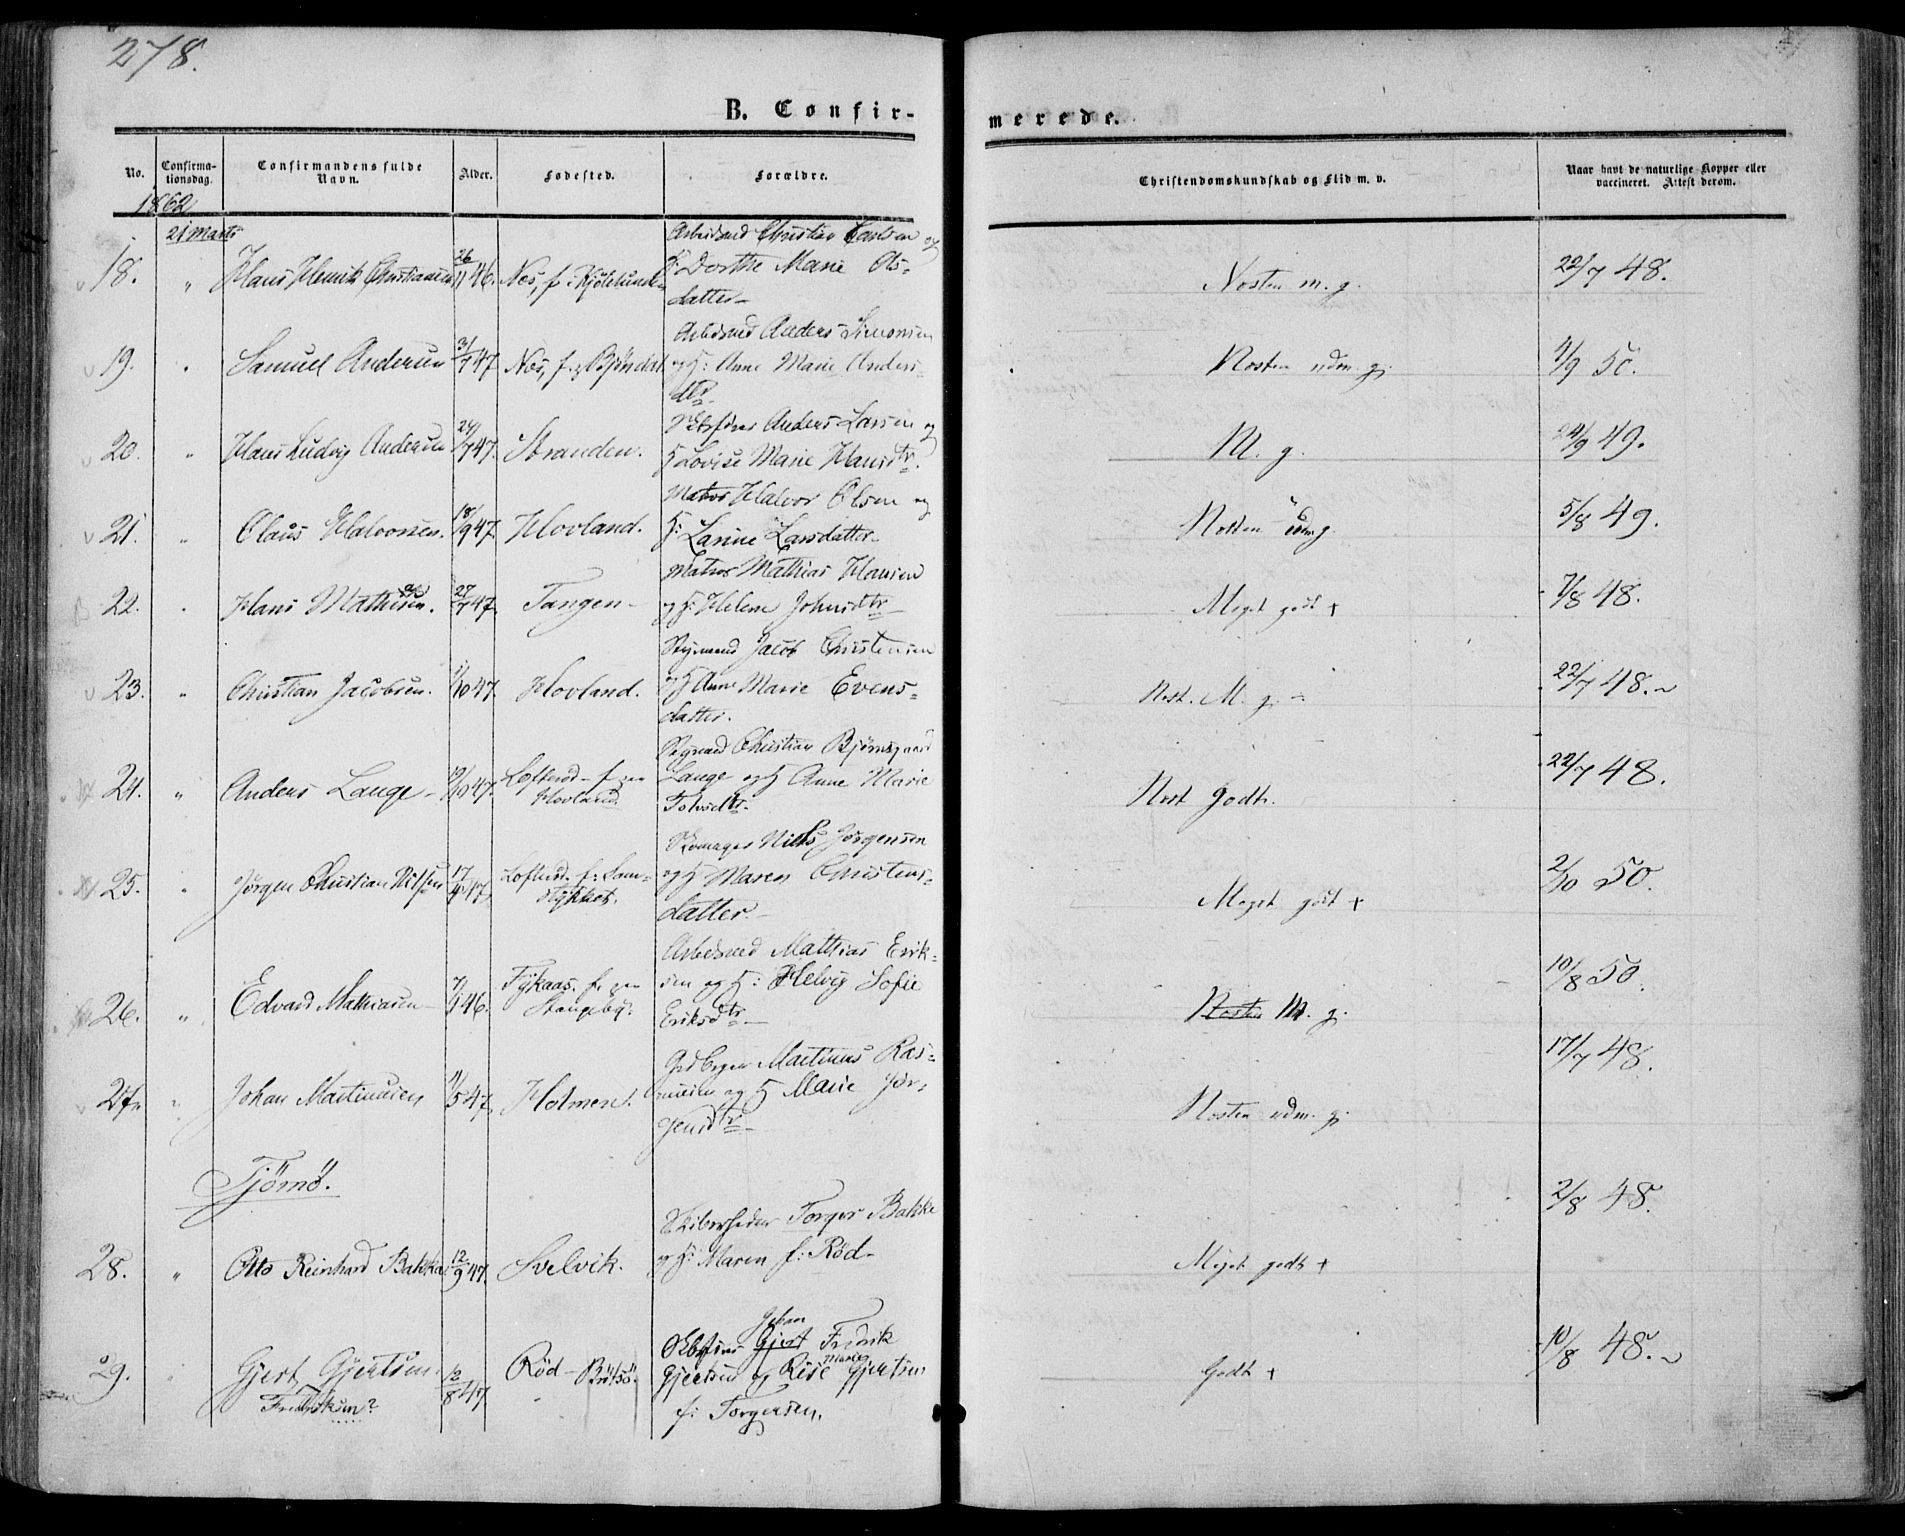 278.
B. Confir-
merede.
No.
Confirma-
tionsdag.
Confirmandens fulde
Navn.
Alder.
Fødested.
Forældre.
Christendomskundskab og Flid m. v.
Naar havt de naturlige Kopper eller
vaccineret. Attest derom.
1862
21 Marts
Arbeidsmd Christian Carlsen og
18. " Hans Henrik Christiansen 26/11 46. Nes, f. Kjølelunden H: Dorthe Marie Ols- Nesten m. g. 22/7 48.
datter
Arbeidsmd Anders Simonsen
19. " Samuel Andersen 31/7 47 Nes, f. Bjøndal og H: Anne Marie Anders Nesten udm. g. 4/9 50.
dtr.
Anders Larsen og
20. " Hans Ludvig Andersen 24/7 47. Stranden. H Lovise Marie Hansdtr. M. g. 24/9 49.
Matros Halvor Olsen og
21. " Claus Halvorsen. 18/9 47. Hovland. H: Larine Larsdatter Nesten udm g. 5/8 49.
Matros Mathias Hansen
22. " Hans Mathisen. 27/7 47. Tangen og H: Helene Johnsdtr Meget godt + 7/8 48.
Styrmand Jacob Christensen
23. " Christian Jacobsen. 1/10 47 Hovland. og H Anne Marie Evens- Nest. M. g. 22/7 48.
datter.
Christian Bjørnsgaard
24. " Anders Lange 47. Lofterød f. paa Lange og H Anne Marie Nest Godt. 22/7 48.
Hovland.
25. " Jørgen Christian Nilsen 17/ 47. Lofterød f: Niels Jørgensen
og H Maren Christens- Meget godt + 2/10 50.
datter
Arbeidsmd Mathias Erik-
26. " Edvard Mathiasen 46. f. paa sen og H: Helvig Sofie M. g. 10/8 50.
Stangeby. Eriksdtr
Martinus Ras-
27. " Johan Martinusen 11/5 47. Holmen. musen og H Marie Jør- Nesten udm. g. 17/7 48.
gensdtr
Tjömö.
Torger Bakke
28. " Otto Reinhard Bakke 12/9 47. Svelvik. og H: Maren f: Röd Meget godt + 2/8 48.
Johan
Gjert Fredrik
29. " Gjert Gjertsen. 12/8 47. Röd - Brötsö. Gjertsen og Marie Gjertsen Godt + 10/8 48.
Fredriksen? f: Torgersen.